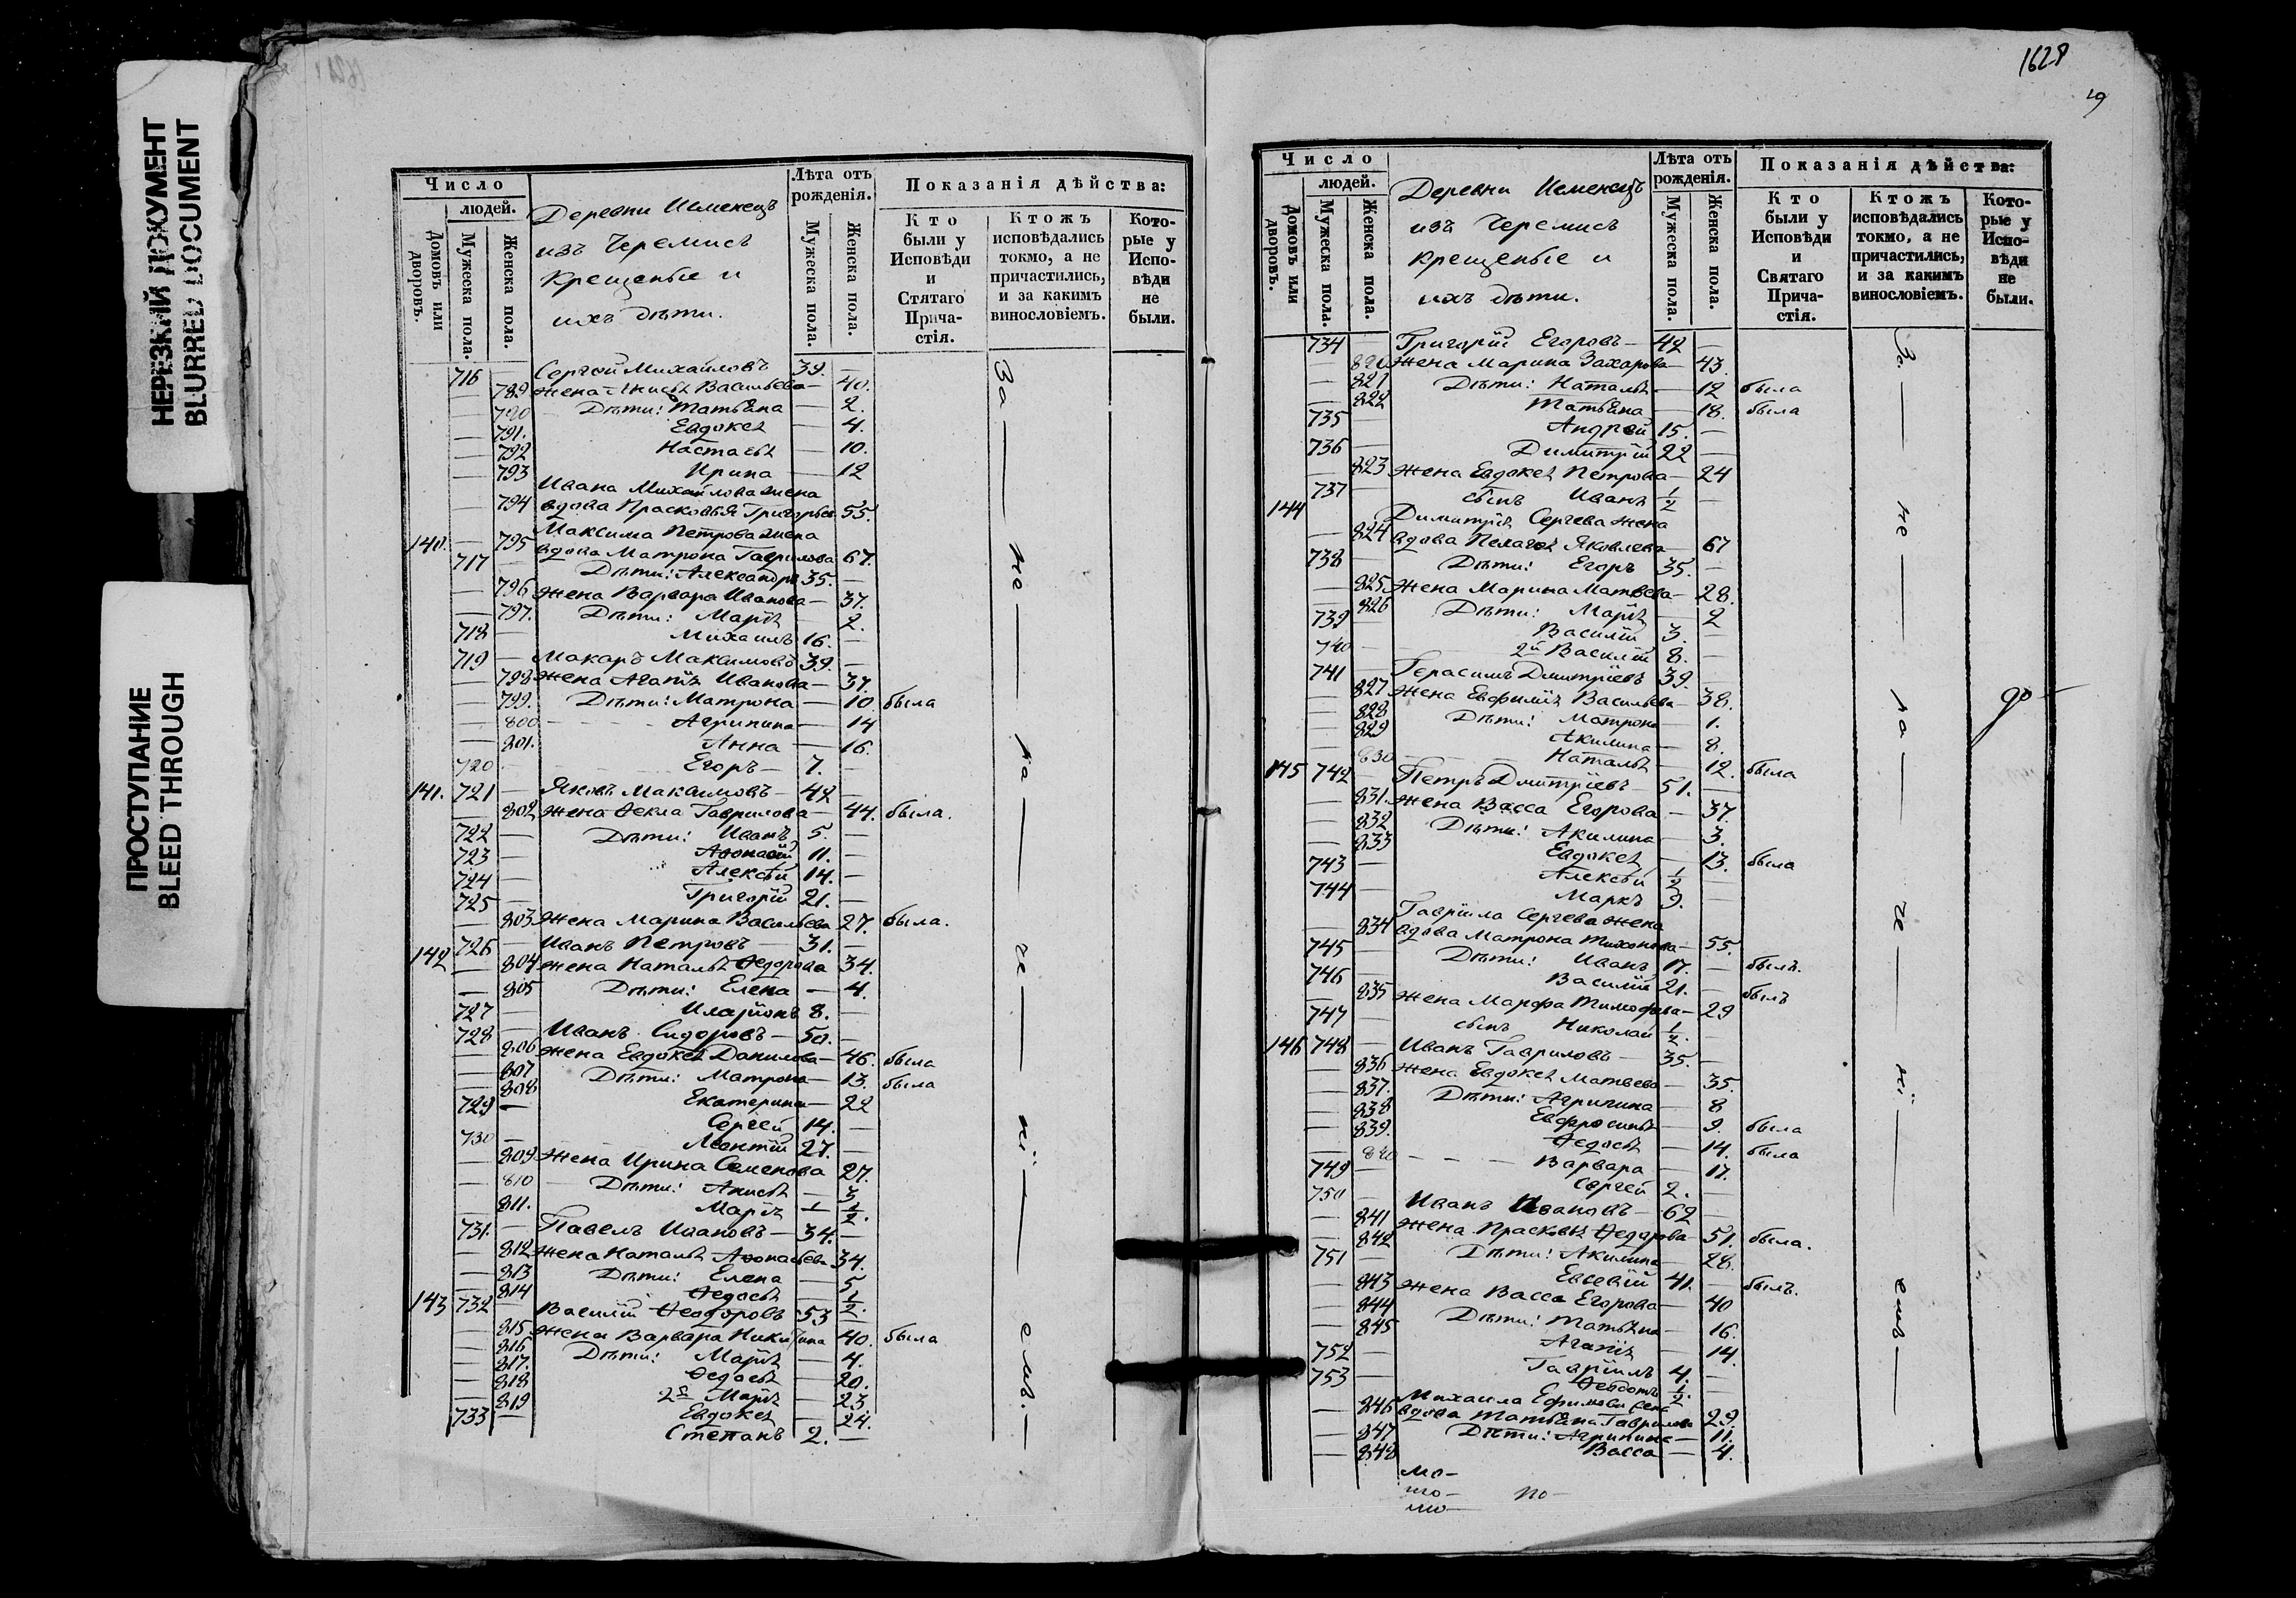 НЕРЕЗКИЙ ДОКУМЕНТ
BLURRED DOCUMENT
ПРОСТУПАНИЕ
BLEED THROUGH
Число
людей.
Домовъ или дворовъ.
Мужеска пола.
Женска пола.
Деревни Исменецъ
изъ Черемисъ
крещеные и
ихъ дѣти.
Лѣта отъ рожденія.
Мужеска пола.
Женска пола.
Показанія дѣйства:
Кто были у Исповѣди и Стятаго Прича-стія.
Ктожъ исповѣдались токмо, а не причастились, и за какимъ винословіемъ.
Кото-рые у Испо-вѣди не были.
716 — Сергѣй Михайловъ 39. —
— 789 жена Анисья Васильева — 40.
— 790 Дѣти: Татьяна — 2.
— 791. Евдокея — 4.
— 792 Настасья — 10.
— 793 Ирина — 12
Ивана Михайлова жена
— 794 вдова Прасковья Григорьев. 55.
Максима Петрова жена
140. — 795 вдова Матрона Гаврилова 67.
717 — Дѣти: Александръ 35. —
— 796 жена Варвара Иванова — 37.
— 797. Дѣти: Марія — 2.
718 — Михаилъ 16. —
719 — Макаръ Максимовъ 39. —
— 798 жена Агапія Иванова — 37.
— 799. Дѣти: Матрона — 10. была
— 800 Агрипина — 14
— 801. Анна — 16.
720 — Егоръ — 7. —
141. 721 — Яковъ Максимовъ — 42 —
— 802 жена Ѳекла Гаврилова — 44. была.
722 — Дѣти: Иванъ 5. —
723 — Аѳонасій 11. —
724 — Алексѣй 14. —
725 — Григорій 21. —
— 803 жена Марина Васильева 27. была.
142 726 — Иванъ Петровъ — 31. —
— 804 жена Наталья Ѳедорова 34.
— 805 Дѣти: Елена — 4.
727 — Иларіонъ 8. —
728 — Иванъ Сидоровъ — 50. —
— 806 жена Евдокея Данилова — 46. была
— 807 Дѣти: Матрона — 13. была
— 808 Екатерина — 22
729 — Сергѣй 14. —
730 — Леонтій 27. —
— 809 жена Ирина Семенова 27.
— 810 Дѣти: Анисья — 3
— 811. Марія — 1/2.
731. — Павелъ Ивановъ — 34. —
— 812 жена Наталья Аѳонасьева 34.
— 813 Дѣти: Елена — 5
— 814 Ѳедосья — 1/2.
143 732 — Василій Ѳеодоровъ 53 —
— 815 жена Варвара Никитина 40. была
— 816 Дѣти: Марія — 4.
— 817. Ѳедосья — 20.
— 818 2я Марія — 23
— 819 Евдокея — 24.
733 — Степанъ 2. —
За — не — ра — че — ні — емъ. —
1628
19
Число
людей.
Домовъ или дворовъ.
Мужеска пола.
Женска пола.
Деревни Исменецъ
изъ Черемисъ
крещеные и
ихъ дѣти.
Лѣта отъ рожденія.
Мужеска пола.
Женска пола.
Показанія дѣйства:
Кто были у Исповѣди и Святаго Прича-стія.
Ктожъ исповѣдались токмо, а не причастились, и за какимъ винословіемъ.
Кото-рые у Испо-вѣди не были.
734 — Григорій Егоровъ — 42 —
— 820 жена Марина Захарова — 43.
— 821 Дѣти: Наталья — 12 была
— 822 Татьяна — 18. была
735 — Андрей 15. —
736 — Димитрій 22 —
— 823 жена Евдокея Петрова — 24
737 — сынъ Иванъ 1/2 —
144 Димитрія Сергева жена
— 824 вдова Пелагея Яковлева — 67
738 — Дѣти: Егоръ 35. —
— 825 жена Марина Матвеева — 28.
— 826 Дѣти: Марія — 2
739 — Василій 3. —
740 — 2й Василій 8. —
741 — Герасимъ Димитріевъ 39. —
— 827 жена Евфимія Васильева — 38.
— 828 Дѣти: Матрона — 1.
— 829 Акилина — 8.
— 830 Наталья — 12. была
145 742 — Петръ Дмитріевъ — 51. —
— 831. жена Васса Егорова — 37.
— 832 Дѣти: Акилина — 3.
— 833 Евдокея — 13. была
743 — Алексѣй 1/2 —
744 — Маркъ 9. —
Гавріила Сергева жена
— 834 вдова Матрона Тихонова — 55.
745 — Дѣти: Иванъ 17. — былъ.
746 — Василій 21. — былъ
— 835 жена Марфа Тимофѣева — 29
747 — сынъ Николай 1/2. —
146 748 — Иванъ Гавриловъ — 35. —
— 836 жена Евдокея Матвеева — 35.
— 837. Дѣти: Агрипина — 8
— 838 Евфросинья — 9. была
— 839. Ѳедосья — 14. была
— 840 Варвара — 17.
749 — Сергей 2. —
750 — Иванъ Ивановъ — 62 —
— 841 жена Прасковья Ѳедорова — 51. была.
— 842 Дѣти: Акилина — 28.
751 — Евсевій 41. — былъ.
— 843 жена Васса Егорова — 40
— 844 Дѣти: Татьяна — 16.
— 845 Агапія — 14.
752 — Гавріилъ 4. —
753 — Ѳедотъ 1/2. —
Михаила Ефимова жена
— 846 вдова Татьяна Гаврилова 29.
— 847 Дѣти: Агрипина — 11.
— 848 Васса — 4.
За — не — ра — че — ні — емъ —